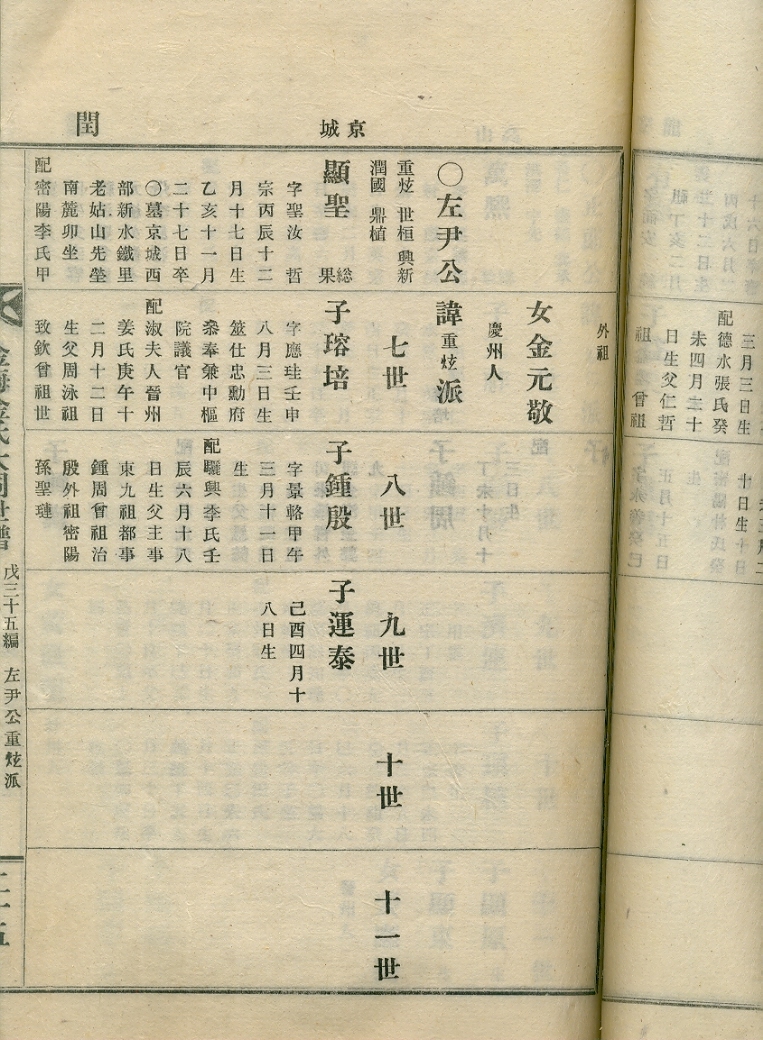 三月三日生
配德水張氏癸
未四月二十
日生父仁哲
祖 曾祖
十日生
正月十五日
生
京城
閏
外祖
女金元敬
慶州人
○左尹公諱重炫派
重炫 世桓 興新
潤國 鼎植
顯聖
字聖汝 哲
宗丙辰十二
月十七日生
乙亥十一月
二十七日卒
○墓京城西
部新水鐵里
老姑山先塋
南麓卯坐
配密陽李氏甲
七世
子瑢培
字應珪壬申
八月三日生
筮仕忠勳府
叅奉兼中樞
院議官
配淑夫人晉州
姜氏庚午十
二月十二日
生父周泳祖
致欽曾祖世
八世
子鍾殷
字景輅甲午
三月十一日
生
配驪興李氏壬
辰六月十八
日生父主事
東九祖都事
鍾周曾祖治
殷外祖密陽
孫聖璉
九世
子運泰
己酉四月十
八日生
十世
十一世
金海金氏大同世譜
戊三十五編
左尹公重炫派
二十五